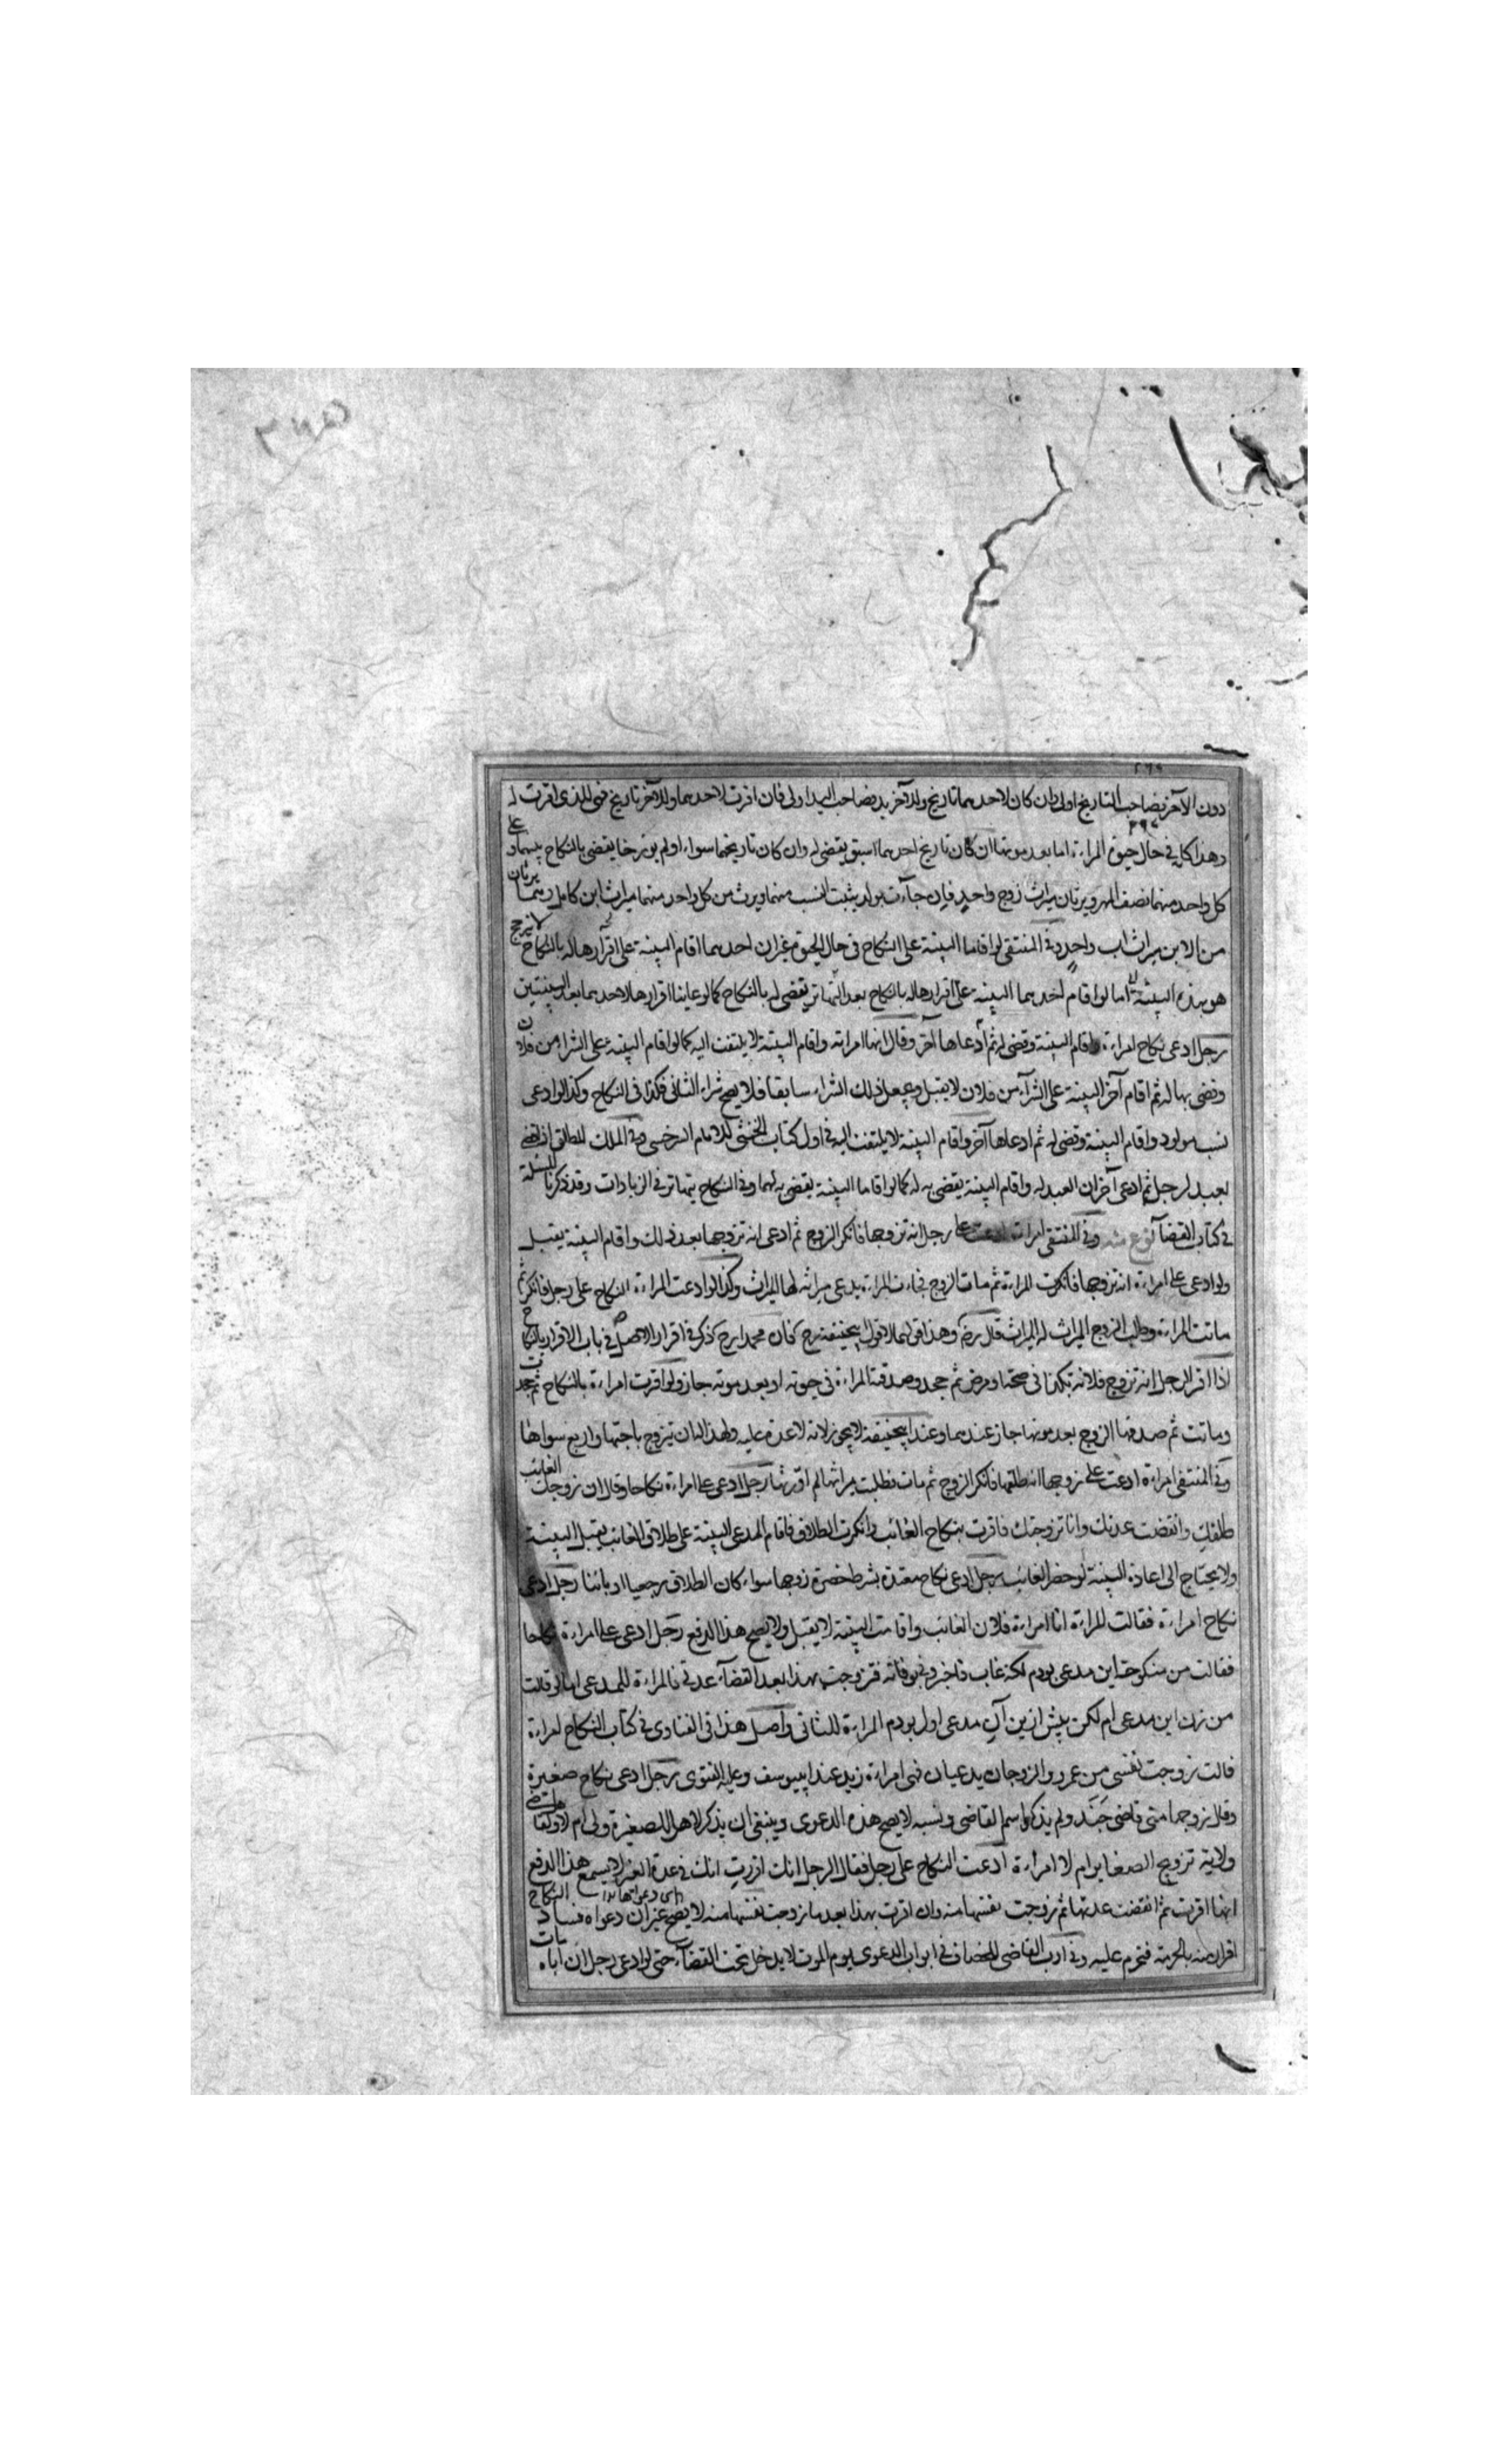 دون الآخر فصاحب التاريخ اولى وان كان لاحدهما تاريخ وللآخر يد فصاحب اليد اولى فان اقرت لاحدهما وللآخر تاريخ فهى للذى اقرت له
وهذا كله فى حال حيوة المراءة اما بعد موتها ان كان تاريخ احدهما اسبق يقضى له وان كان تاريخهما سواء او لم يورخا يقضى بالنكاح بينهما وعلى
كل واحد منهما نصف المهر ويرثان ميراث زوج واحد فان جاءت بولد يثبت النسب منهما ويرث من كل واحد منهما ميراث ابن كامل وهما يرثان
من الابن ميراث اب واحد وفى المنتقى لو اقاما البينة على النكاح فى حال الحيوة غير ان احدهما اقام البينة على اقرارها له بالنكاح لا يترجح
هو بهذه البينة اما لو اقام احدهما البينة على اقرارها له بالنكاح بعد التهاتر يقضى له بالنكاح كما لو عاينا اقرارها لاحدهما بعد البينتين
رجل ادعى نكاح امراءة واقام البينة وقضى له ثم ادعاها آخر وقال انها امراته واقام البينة لا يلتفت اليه كما لو اقام البينة على الشراء من فلان
وقضى بها له ثم اقام آخر البينة على الشرآء من فلان لا يقبل ويجعل ذلك الشراء سابقا فلا يصح شراء الثانى فكذا فى النكاح وكذا لو ادعى
نسب مولود واقام البينة وقضى له ثم ادعاها آخر واقام البينة لا يلتفت اليه فى اول كتاب الخنثى للامام السرخسى وفى الملك المطلق اذا قضى
بعبد لرجل ثم ادعى آخر ان العبد له واقام البينة يقضى به له كما لو اقاما البينة يقضى به لهما وفى النكاح يتهاتر فى الزيادات وقد ذكرنا المسئلة
فى كتاب القضآء وفى المنتقى امراءة ادعت على رجل انه تزوجها فانكر الزوج ثم ادعى انه تزوجها بعد ذلك واقام البينة يقبل
ولو ادعى على امراءة انه تزوجها فانكرت المراءة ثم مات الزوج فجاءت المراءة يدعى ميراثه لها الميراث وكذا لو ادعت المراءة النكاح على رجل فانكر ثم
ماتت المراءة وطلب الزوج الميراث له الميراث قال رضه وهذا قولهما لا قول ابيحنيفة رح فان محمدا رح ذكر فى اقرار الاصل فى باب الاقرار بالنكاح
اذا اقر الرجل انه تزوج فلانة بكذا فى صحته او مرض ثم جحد وصدقته المراءة فى حيوته او بعد موته جاز ولو اقرت امراءة بالنكاح ثم جحدت
وماتت ثم صدقها الزوج بعد موتها جاز عندهما وعند ابيحنيفة لا يجوز لانه لا عدة عليه ولهذا له ان يتزوج باختها واربع سواها
وفى المنتقى امراءة ادعت على زوجها انه طلقها فانكر الزوج ثم مات فطلبت ميراثها لم اورثها رجل ادعى على امراءة نكاحا وقال ان زوجك الغائب
طلقك وانقضت عدتك وانا تزوجتك فاقرت بنكاح الغائب وانكرت الطلاق فاقام المدعى البينة على طلاق الغائب يقبل البينة
ولا يحتاج الى اعادة البينة لو حضر الغائب رجل ادعى نكاح معتدة بشرط حضرة زوجها سواء كان الطلاق رجعيا او بائنا رجل ادعى
نكاح امراءة فقالت المراءة انا امراءة فلان الغائب واقامت البينة لا يقبل ولا يصح هذا الدفع رجل ادعى على امراءة نكاحا
فقالت من منكوحه اين مدعى بودم لكنه غاب فاخبرونى بوفاته فتزوجت بهذا بعد انقضاء عدتى فالمراءة للمدعى اما لو قالت
من زن اين مدعى ام لكن پيش ازين آن مدعى اول بودم المراءة للثانى واصل هذا فى الفتاوى فى كتاب النكاح امراءة
قالت زوجت نفسى من عمرو والزوجان يدعيان فهى امراءة زيد عند ابييوسف وعليه الفتوى رجل ادعى نكاح صغيرة
وقال زوجها منى قاضى جند ولم يذكر اسم القاضى ونسبه لا يصح هذه الدعوى وينبغى ان يذكر لا هل للصغيرة ولى ام لا ولقاضى
ولاية تزويج الصغاير ام لا امراءة ادعت النكاح على رجل فقال الرجل انك اقررت انك فى عدة الغير لا يسمع هذا الدفع
انها اقرت ثم انقضت عدتها ثم زوجت نفسها منه وان اقرت بهذا بعد ما زوجت نفسها منه لا يصح غير ان دعواه فساد النكاح
اقرار منه بالحرمة فتحرم عليه وفى ادب القاضى للخصاف فى ابواب الدعوى يوم الموت لا يدخل تحت القضآء حتى لو ادعى رجل ان اباه مات